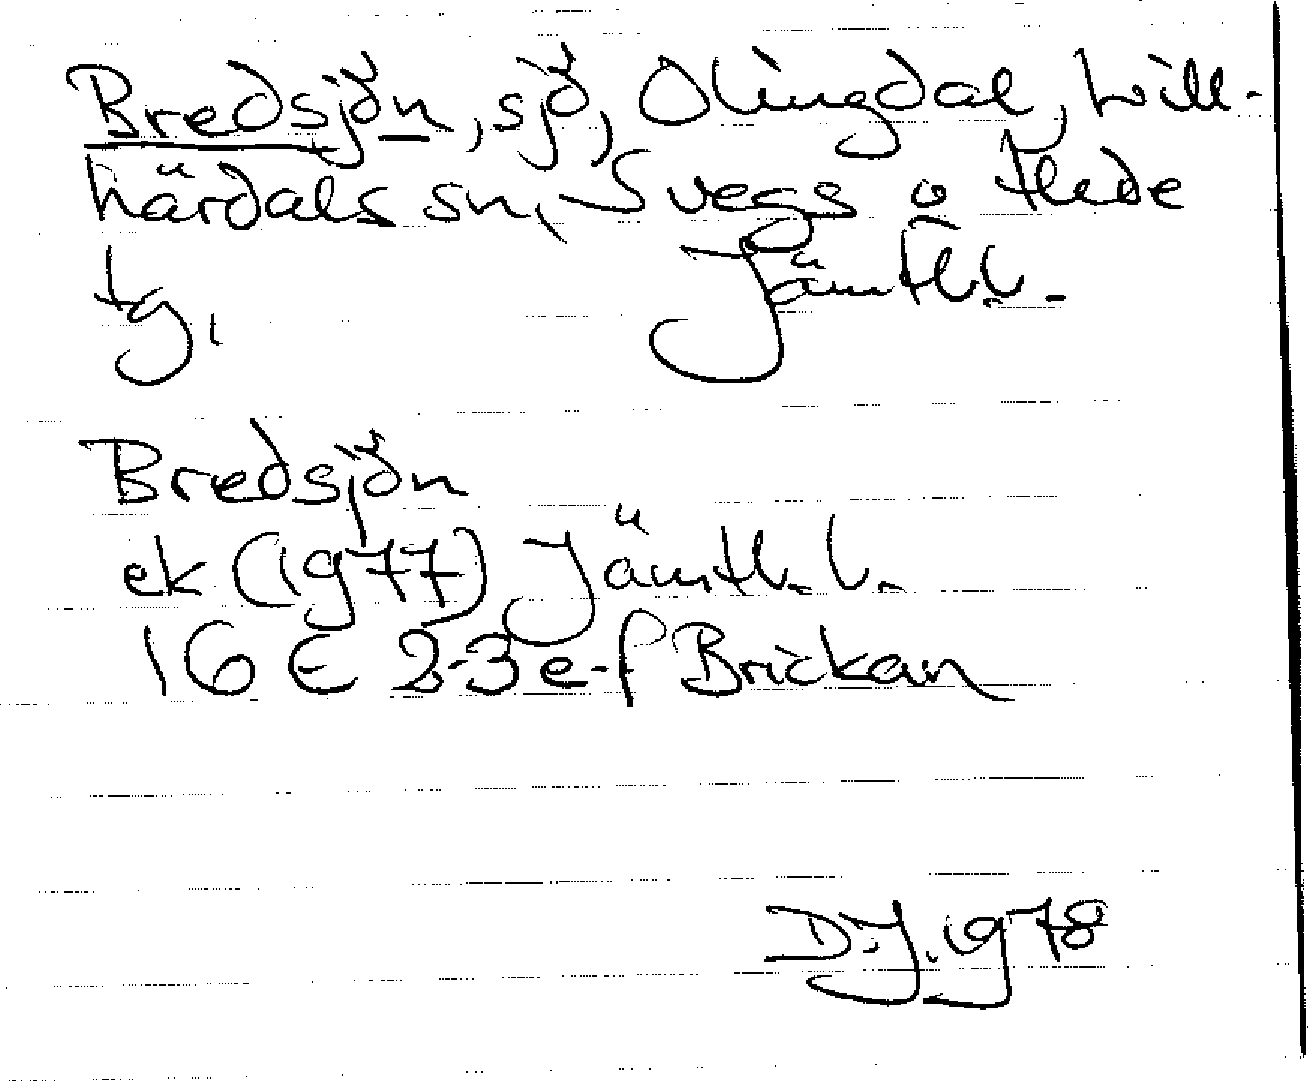 Bredsjön, sjö, Olingdal, Lill-
härdals sn, Svegs o Hede
tg, Jämtl. l.
Bredsjön
ek (1977) Jämtl. l.
16 E 2-3 e-f Brickan
D.J. 1978